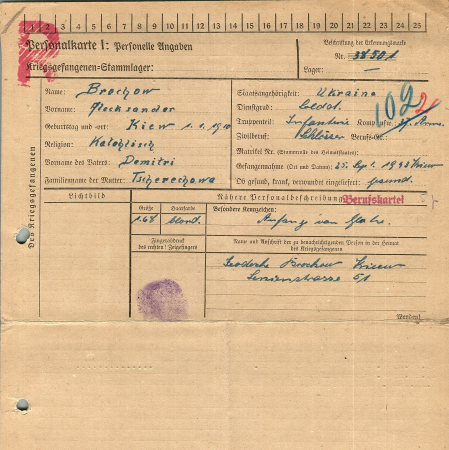 1 2 3 4 5 6 7 8 9 10 11 12 13 14 15 16 17 18 19 20 21 22 23 24 25
Personalkarte I: Personelle Angaben
Kriegsgefangenen-Stammlager:
Beschriftung der Erkennungsmarke
Nr. 38501
Lager:
Des Kriegsgefangenen
Name: Brochow
Vorname: Alecksander
Geburtstag und -ort: Kiew 1. 1. 1910
Religion: Katohlisch
Vorname des Vaters: Demitri
Familienname der Mutter: Tscherechowa
Staatsangehörigkeit: Ukraine
Dienstgrad: Soldat
Truppenteil: Infanterie Komp. usw.:
Zivilberuf: Schlosser Berufs-Gr.:
Matrikel Nr. (Stammrolle des Heimatstaates):
Gefangennahme (Ort und Datum): 25. Sept. 1943 Kiew
Ob gesund, krank, verwundet eingeliefert: gesund.
102
Lichtbild
Nähere Personalbeschreibung
Berufskartei
Größe
Haarfarbe
Besondere Kennzeichen:
1.68
blond.
Anfang von
Fingerabdruck
des rechten! Zeigefingers
Name und Anschrift der zu benachrichtigenden Person in der Heimat
des Kriegsgefangenen
Brochow Kiew
51
Wenden!